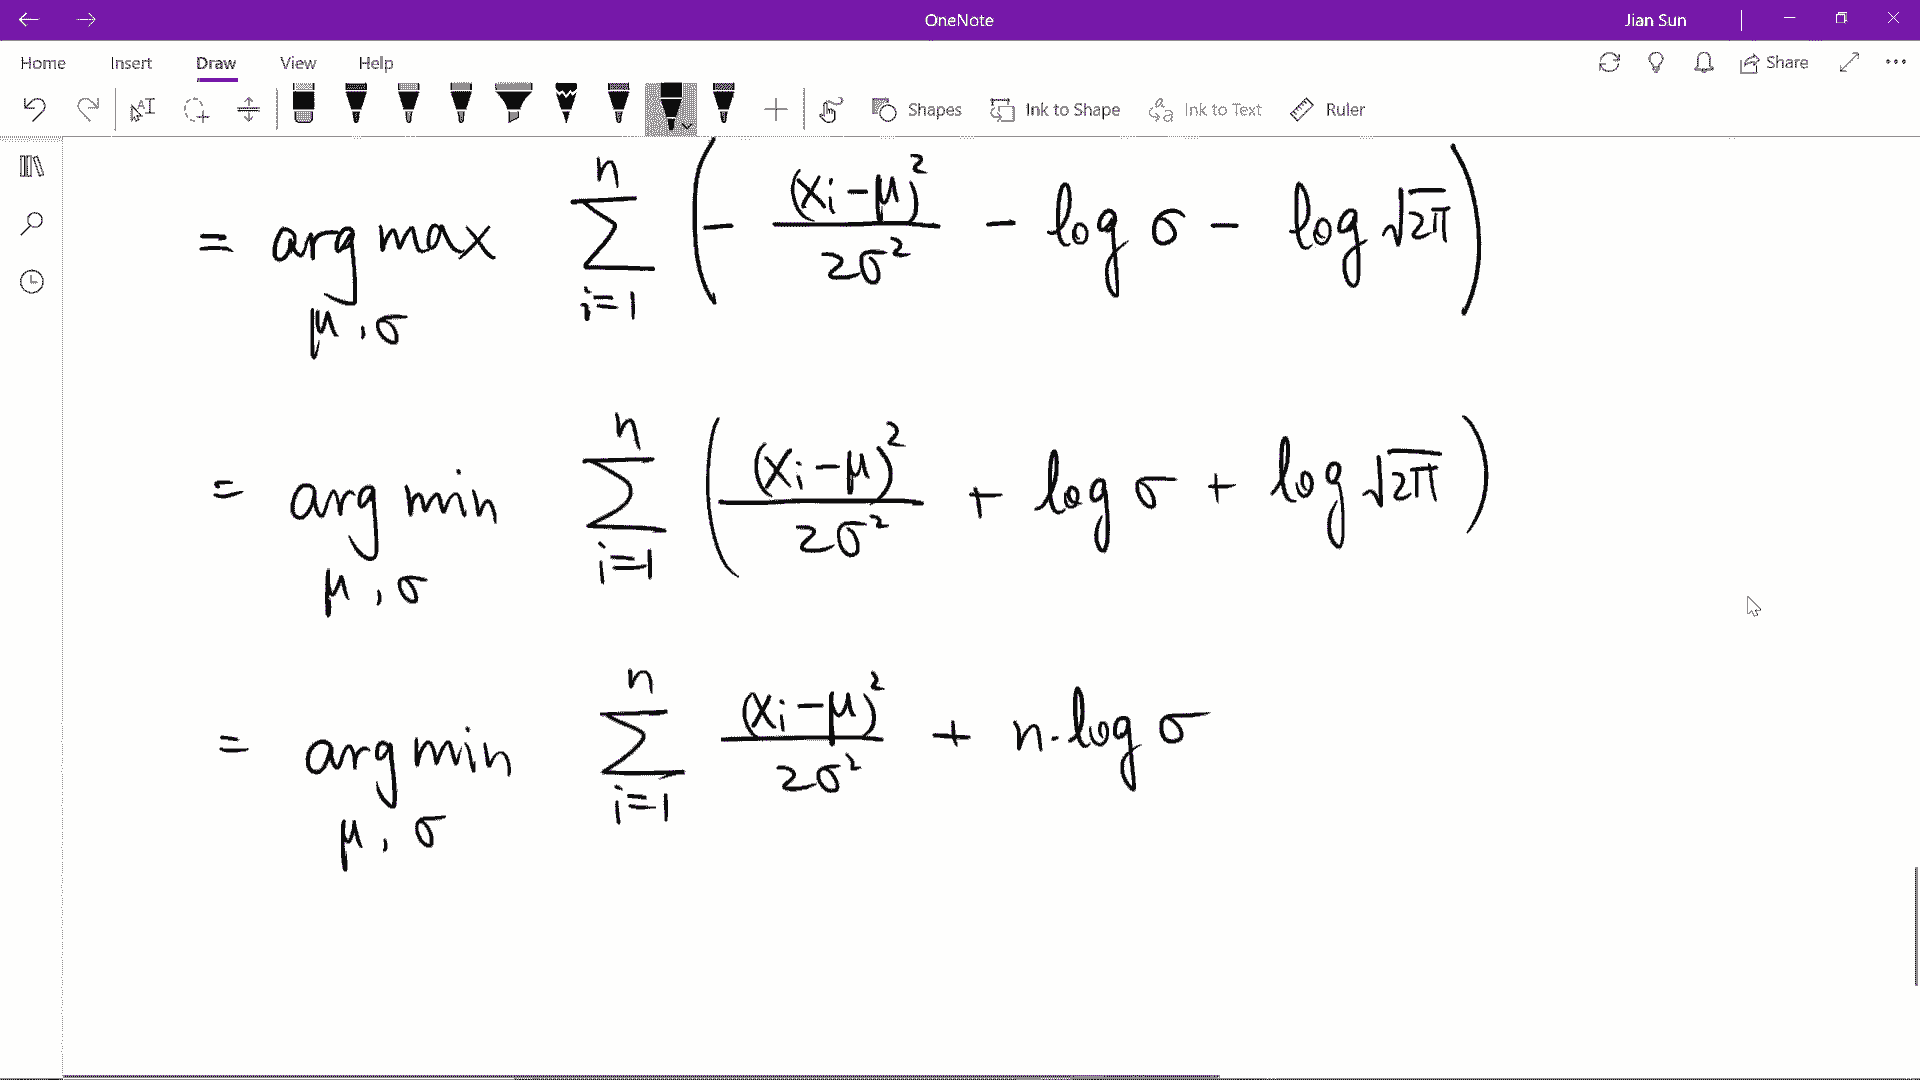 OneNote
Jian Sun
Home Insert Draw View Help
Share
Shapes Ink to Shape Ink to Text Ruler
= arg max_{μ,σ} ∑_{i=1}^{n} ( - (xᵢ-μ)² / 2σ² - log σ - log √2π )
= arg min_{μ,σ} ∑_{i=1}^{n} ( (xᵢ-μ)² / 2σ² + log σ + log √2π )
= arg min_{μ,σ} ∑_{i=1}^{n} (xᵢ-μ)² / 2σ² + n·log σ